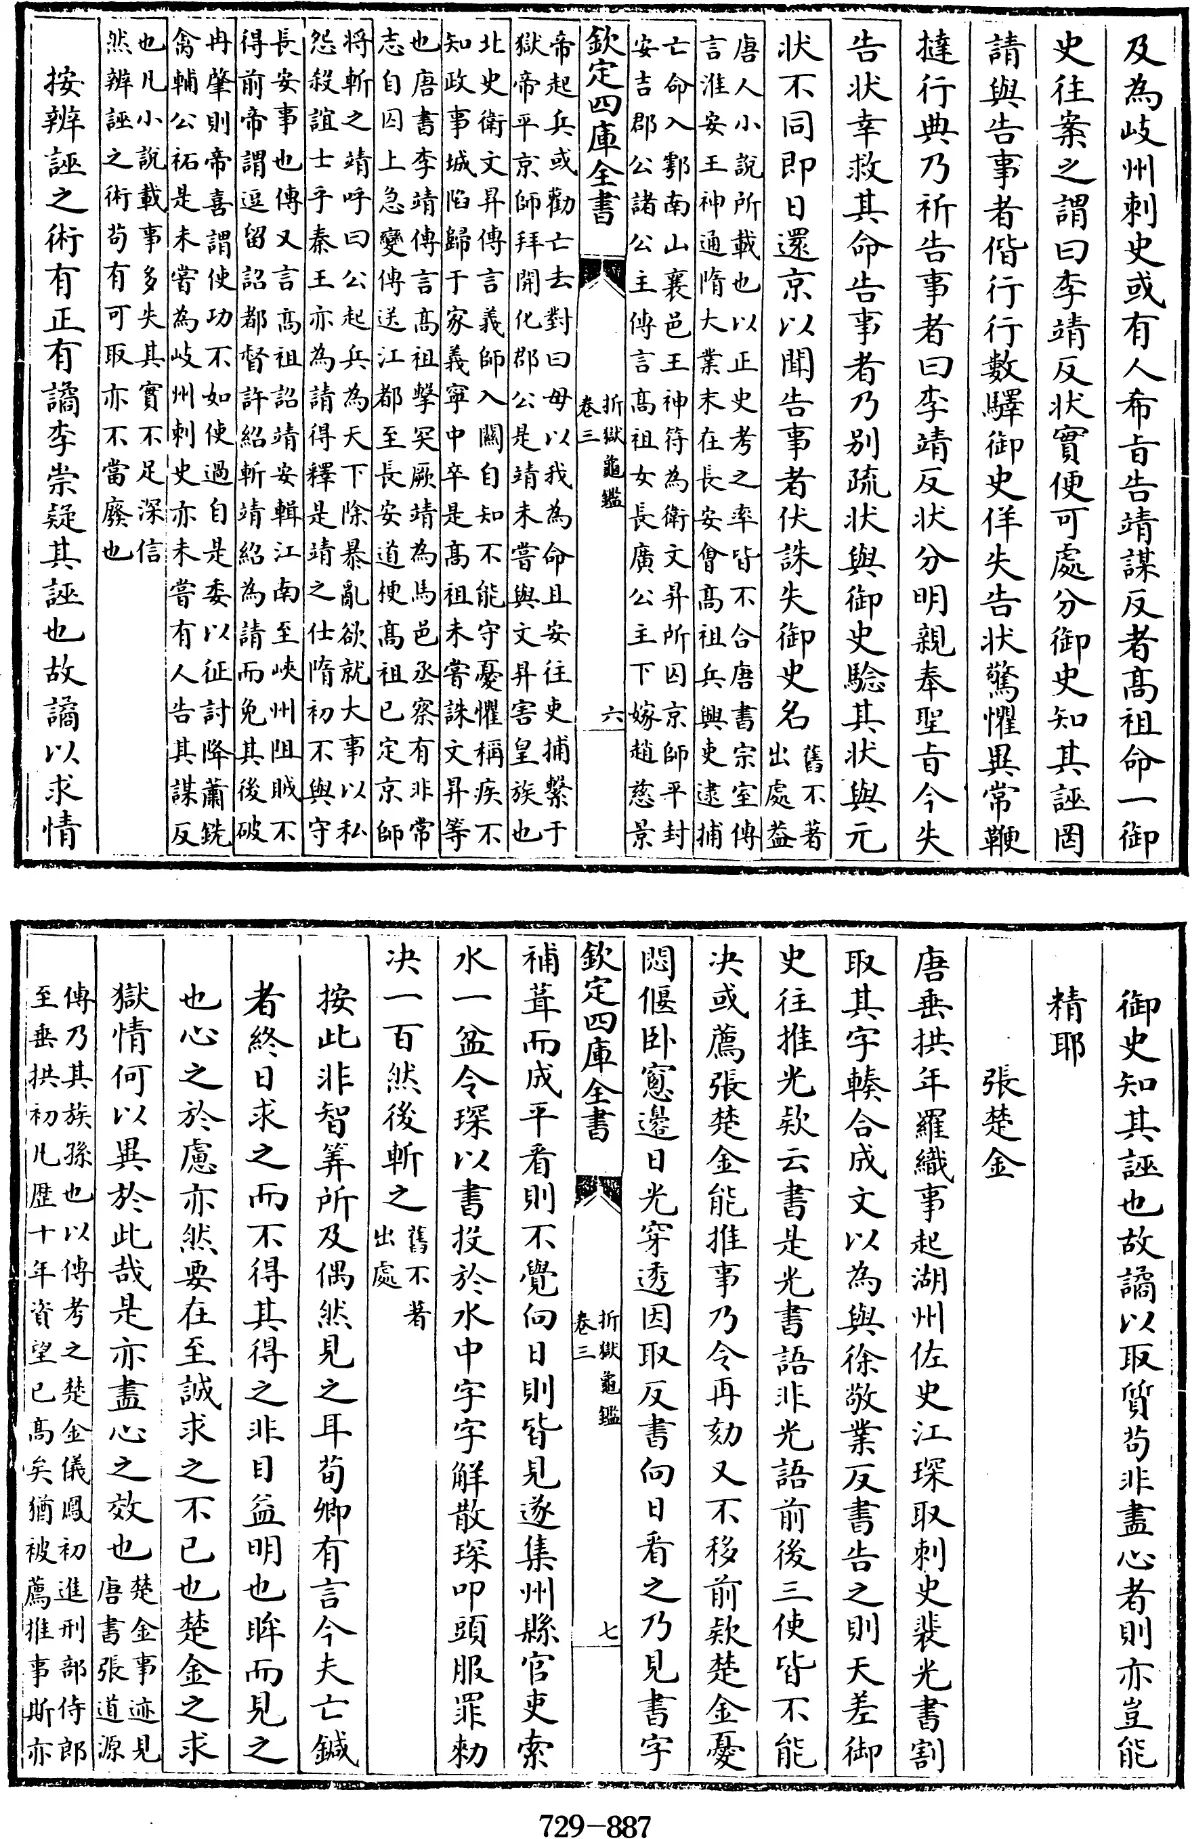 及為岐州刺史或有人希旨告靖謀反者髙祖命一御
史往案之謂曰李靖反狀實便可處分御史知其誣罔
請與告事者偕行行數驛御史佯失告狀驚懼異常鞭
撻行典乃祈告事者曰李靖反狀分明親奉聖旨今失
告狀幸救其命告事者乃别疏狀與御史驗其狀與元
狀不同即日還京以聞告事者伏誅失御史名舊不著出處蓋
唐人小說所載也以正史考之率皆不合唐書宗室傳
言淮安王神通隋大業末在長安會髙祖兵興吏逮捕
亡命入鄠南山襄邑王神符為衛文昇所囚京師平封
安吉郡公諸公主傳言髙祖女長廣公主下嫁趙慈景
欽定四庫全書
折獄龜鑑
卷三
六
帝起兵或勸亡去對曰母以我為命且安往吏捕繫于
獄帝平京師拜開化郡公是靖未嘗與文昇害皇族也
北史衛文昇傳言義師入關自知不能守憂懼稱疾不
知政事城陷歸于家義寧中卒是髙祖未嘗誅文昇等
也唐書李靖傳言髙祖擊突厥靖為馬邑丞察有非常
志自囚上急變傳送江都至長安道梗髙祖已定京師
將斬之靖呼曰公起兵為天下除暴亂欲就大事以私
怨殺誼士乎秦王亦為請得釋是靖之仕隋初不與守
長安事也傳又言髙祖詔靖安輯江南至峽州阻賊不
得前帝謂逗留詔都督許紹斬靖紹為請而免其後破
冉肇則帝喜謂使功不如使過自是委以征討降蕭銑
禽輔公祏是未嘗為岐州刺史亦未嘗有人告其謀反
也凡小說載事多失其實不足深信
然辨誣之術苟有可取亦不當廢也
按辨誣之術有正有譎李崇疑其誣也故譎以求情
御史知其誣也故譎以取質苟非盡心者則亦豈能
精耶
張楚金
唐垂拱年羅織事起湖州佐史江琛取刺史裴光書割
取其字輳合成文以為與徐敬業反書告之則天差御
史往推光欵云書是光書語非光語前後三使皆不能
决或薦張楚金能推事乃令再劾又不移前欵楚金憂
悶偃卧窻邊日光穿透因取反書向日看之乃見書字
欽定四庫全書
折獄龜鑑
卷三
七
補葺而成平看則不覺向日則皆見遂集州縣官吏索
水一盆令琛以書投於水中字字解散琛叩頭服罪勑
决一百然後斬之舊不著出處
按此非智筭所及偶然見之耳荀卿有言今夫亡鍼
者終日求之而不得其得之非目益明也眸而見之
也心之於慮亦然要在至誠求之不已也楚金之求
獄情何以異於此哉是亦盡心之效也楚金事迹見唐書張道源
傳乃其族孫也以傳考之楚金儀鳳初進刑部侍郎
至垂拱初凡歴十年資望已髙矣猶被薦推事斯亦
729-887